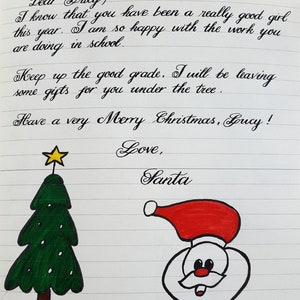 Dear Lucy,
I know that you have been a really good girl
this year. I am so happy with the work you
are doing in school.
Keep up the good grade. I will be leaving
some gifts for you under the tree.
Have a very Merry Christmas, Lucy!
Love,
Santa